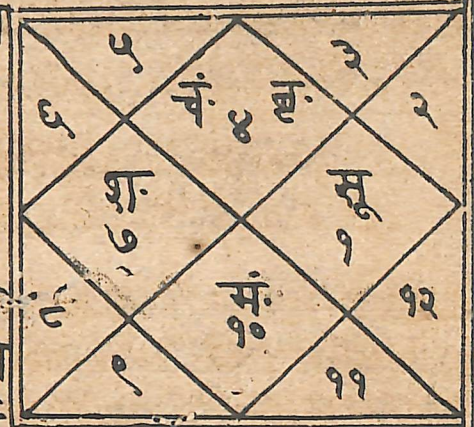 ५
३
चं बृं
४
६
२
शं
७
सू
१
८
मं
१०
१२
९
११